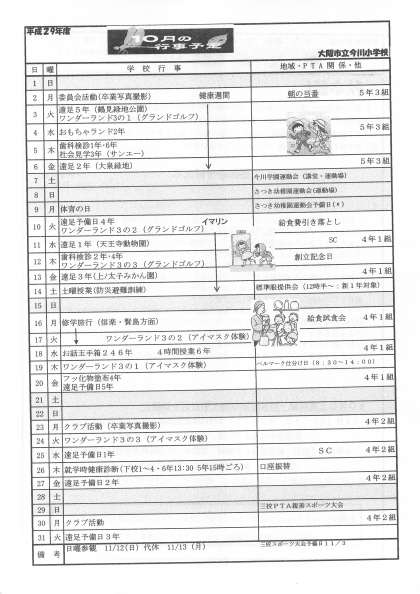 平成29年度
10月の
行事予定
大阪市立今川小学校
日 曜 学校行事 地域・PTA関係・他
1 日
2 月 委員会活動(卒業写真撮影) 健康週間 朝の当番 5年3組
3 火 遠足5年(鶴見緑地公園)
ワンダーランド3の1(グランドゴルフ)
4 水 おもちゃランド2年 5年3組
5 木 歯科検診1年・6年
社会見学3年(サンエー)
6 金 遠足2年(大泉緑地) 5年3組
7 土 今川学園運動会(講堂・運動場)
8 日 さつき幼稚園運動会(運動場)
9 月 体育の日 さつき幼稚園運動会予備日(〃)
10 火 遠足予備日4年 イマリン 給食費引き落とし
ワンダーランド3の2(グランドゴルフ)
11 水 遠足1年(天王寺動物園) SC 4年1組
12 木 歯科検診2年・4年 創立記念日
ワンダーランド3の3(グランドゴルフ) 4年1組
13 金 遠足3年(上ノ太子みかん園)
14 土 土曜授業(防災避難訓練) 標準服提供会(12時半~:新1年対象)
15 日
16 月 修学旅行(信楽・賢島方面) 給食試食会 4年1組
17 火 ワンダーランド3の2(アイマスク体験)
18 水 お話玉手箱246年 4時間授業6年 4年1組
19 木 ワンダーランド3の1(アイマスク体験) ベルマーク仕分け日(8:30~14:00)
20 金 フッ化物塗布4年 4年1組
遠足予備日5年
21 土
22 日
23 月 クラブ活動(卒業写真撮影) 4年2組
24 火 ワンダーランド3の3(アイマスク体験)
25 水 遠足予備日1年 SC 4年2組
26 木 就学時健康診断(下校1~4・6年13:30 5年15時ごろ) 口座振替
27 金 遠足予備日2年 4年2組
28 土
29 日 三校PTA親善スポーツ大会
30 月 クラブ活動 4年2組
31 火 遠足予備日3年
備考 日曜参観 11/12(日) 代休 11/13(月) 三校スポーツ大会予備日11/3